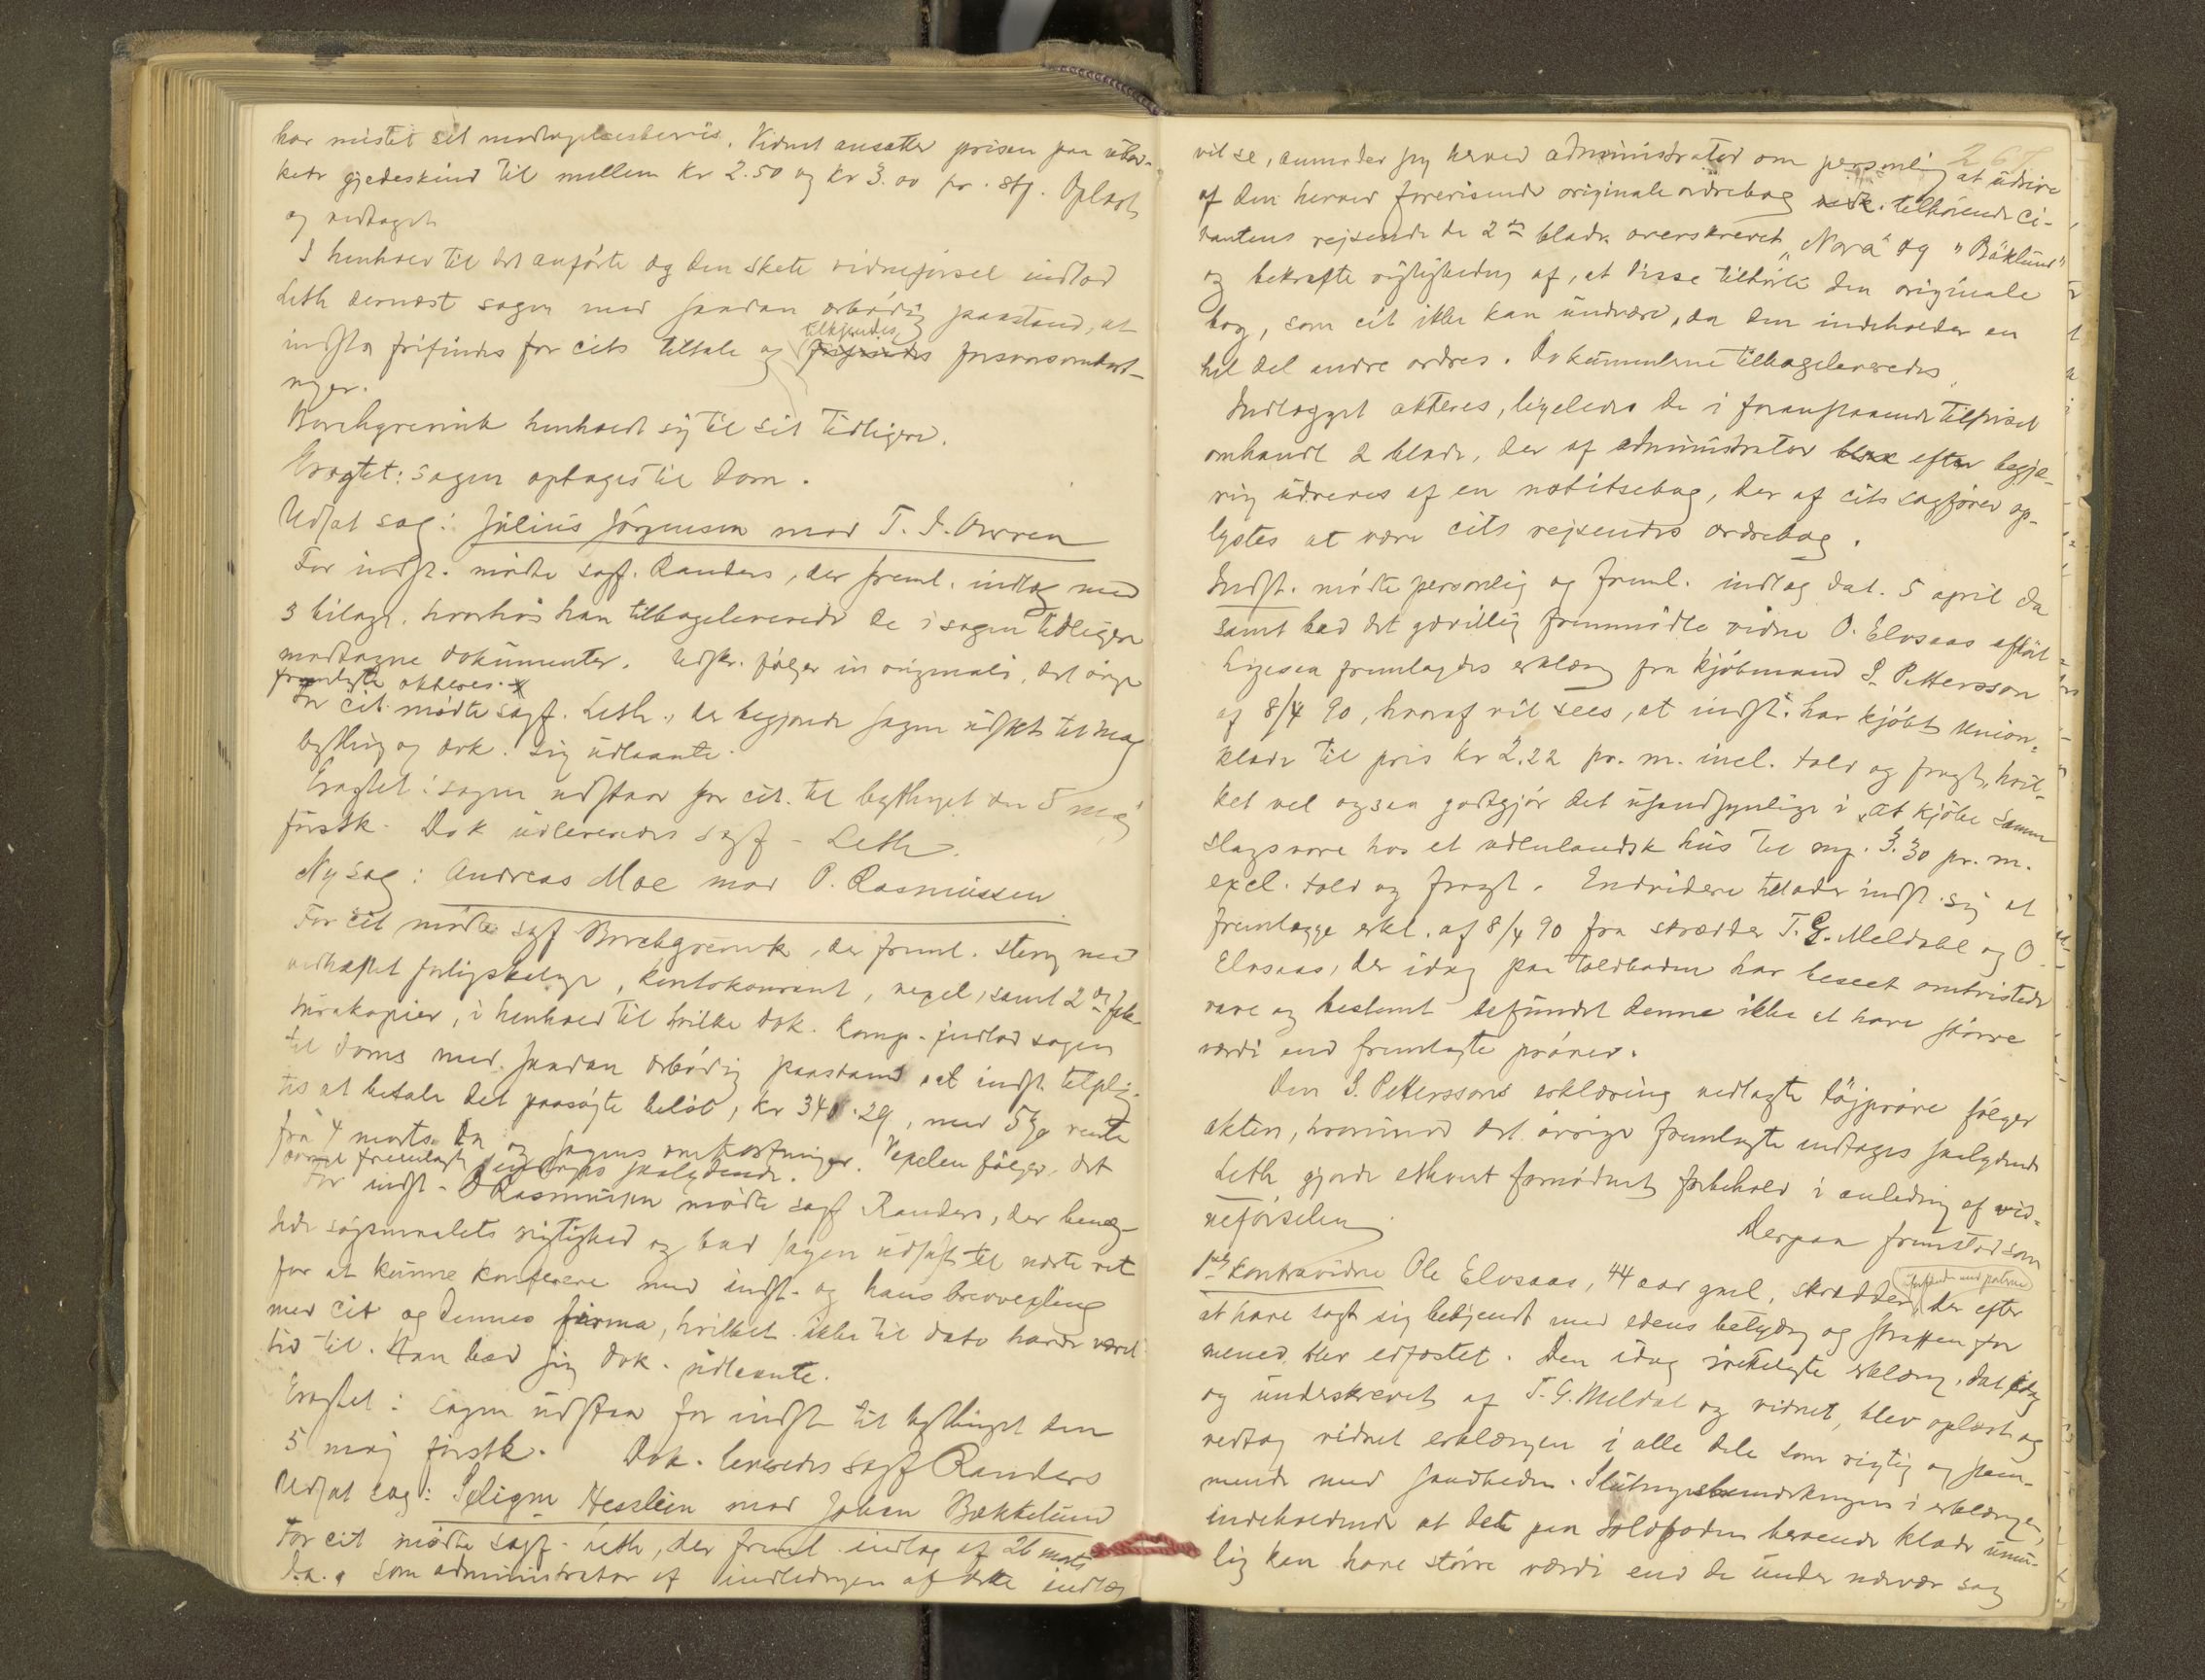 har mistet sit modtagelsesbevis. Vidnet ansætter prisen paa
kede gjedeskind til mellem kr 2.50 og kr 3.00 pr. stg. Oplæst
og vedtaget
I henhold til det anførte og den skete vidneførsel indlod
Leth dernæst sagen med saadan ærbødig paastand, at
indst. frifindes for cits tiltale og tilkjendes forsvarsomkost-
nger.
Borchgrevink henholdt sig til sit tidligere.
Eragtet: Sagen optages til dom.
Udsat sag: Julius Jørgensen mod T. I. Owren
For indst. mødte sagf. Randers, der freml. indlæg med
3 bilage, hvorhos han tilbageleverede de i sagen tidligere
modtagne dokumenter. Udskr. følger in originali, det øvrige
fremlagte akteres.
For cit. mødte sagf. Leth, der begjærede sagen udsat til maj
bythng og dok. sig udlaante.
Eragtet: sagen udstaar for cit. til bythnget den 5 maj
førstk. Dok udleveredes sagf. Leth.
Ny sag: Andreas Moe mod P. Rasmussen
For cit mødte sagf Borchgrevink, der freml. stevng med
vedhæftet forligsklage, kontokurant, vexel, samt 2de fak-
turakopier, i henhold til hvilke dok. komp. indlod sagen
til doms med saadan ærbødig paastand, at indst. tilplig-
tes at betale det paasøgte beløb, kr 340.29, med 5% rente
fra 4 marts da og sagens omkostninger. Vexelen følger, det
øvrige fremlagte indtages saalydende.
For indst. P Rasmussen mødte sagf Randers, der benæg-
tede søgsmaalets rigtighed og bad sagen udsat til næste ret
for at kunne konferere med indst. og hans brevvexling
med cit og dennes firma, hvilket ikke til dato havde været
tid til. Han bad sig dok. udlaante.
Eragtet: Sagen udstaar for indst til bythinget den
5 maj førstk. Dok. leveredes sagf Randers
Udsat sag: Seligm Hesslein mod Johan Bækkelund
For cit mødte sagf. Leth, der freml indlæg af 26 marts
da. Som administrator af indledngen af dette indlæg
267
vil se, anmoder jeg herved administrator om personlig at udrive
af den herved forevisende originale ordrebog tilhørende ci-
tantens rejsende de 2de blade overskrevet „Nora" og „Bäklund"
og bekræfte rigtigheden af, at disse tilhørte den originale
bog, som cit ikke kan undvære, da den indeholder en
hel del andre ordres. Dokumenterne tilbageleveredes.
Indlægget akteres, ligeledes de i foranstaaende tilførsel
omhandl 2 blade, der af administrator efter begjæ-
ring udreves af en notitsebog, der af cits sagfører op-
lystes at være cits rejsendes ordrebog.
Indst. mødte personlig og freml. indlæg dat. 5 april da
samt bad det godvillig fremmødte vidne O. Elvsaas afhørt
Ligesaa fremlagdes erklærng fra kjøbmand S. Pettersson
af 8/4 90, hvoraf vil sees, at indst. har kjøbt Union-
klæde til pris kr 2.22 pr. m. incl. told og fragt, hvil-
ket vel ogsaa godtgjør det usandsynlige i „at kjøbe samme
slags vare hos et udenlandsk hus til 3.30 pr. m.
excl. told og fragt. Endvidere tillader indst. sig at
fremlægge erkl. af 8/4 90 fra skrædder T. G. Meldahl og O.
Elvsaas, der idag paa toldboden har beseet omtvistede
vare og bestemt befundet denne ikke at have større
værdi end fremlagte prøver.
Den S. Petterssons erklæring vedlagte tøjprøve følger
akten, hvorimod det øvrige fremlagte indtages saalydende
Leth gjorde ethvert fornødent forbehold i anledng af vid-
neførselen
Derpaa fremstod som
1ste kontravidne Ole Elvsaas, 44 aar gml, skrædder, der efter
at have sagt sig bekjendt med edens betydng og straffen for
mened blev edfæstet. Den idag fremlagte erklærng, dat idag
og underskrevet af T. G. Meldal og vidnet, blev oplæst og
vedtog vidnet erklæringen i alle dele som rigtig og stem-
mende med sandheden. Slutningsbemærkningen i erklærngen,
indeholdende at det paa toldboden beroende klæde umu-
lig kan have større værdi end de under nærvær sag